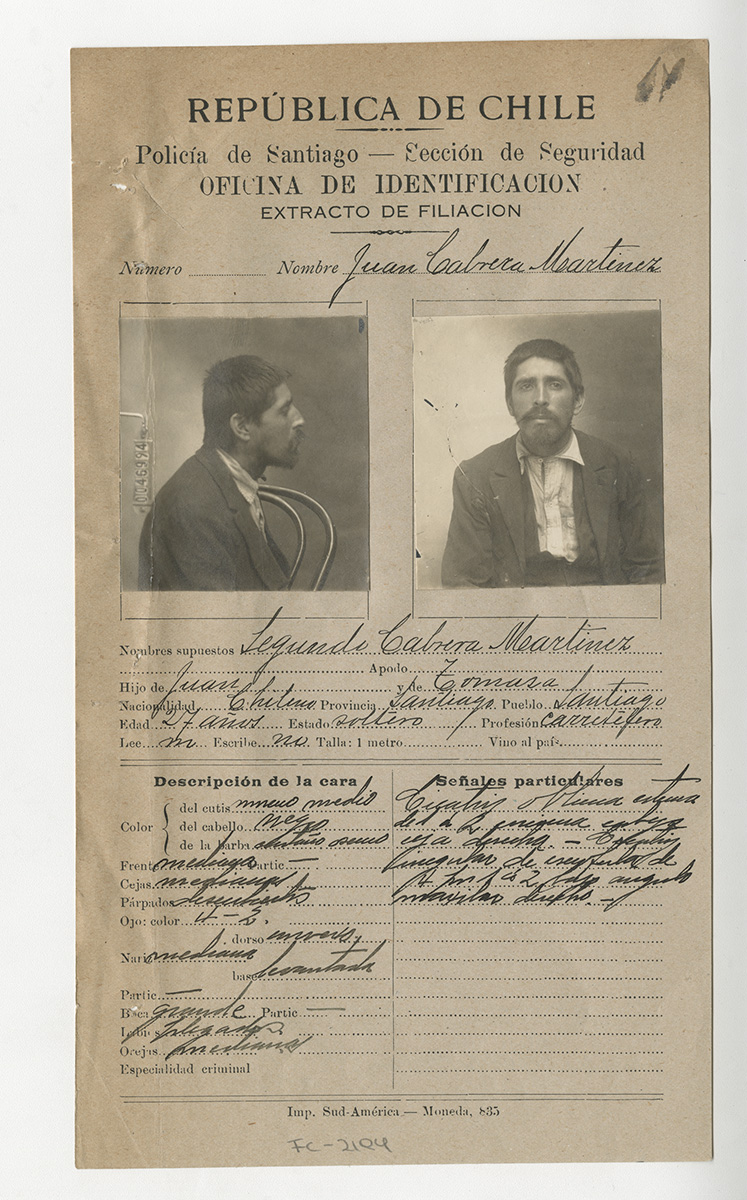 REPÚBLICA DE CHILE
Policía de Santiago — Sección de Seguridad
OFICINA DE IDENTIFICACION
EXTRACTO DE FILIACION
Número Nombre Juan Cabrera Martinez
Nombres supuestos Segundo Cabrera Martinez
Apodo
Hijo de Juan y de Tomasa
Nacionalidad Chileno Provincia Santiago Pueblo Santiago
Edad 27 años Estado soltero Profesión carretelero
Lee Escribe no Talla: 1 metro Vino al país
Descripción de la cara
Color
del cutis moreno medio
del cabello negro
de la barba castaño
Frente mediana Partic —
Cejas medianas
Párpados
Ojo: color 4-2.
Nariz mediana
dorso
base levantada
Partic —
Boca grande Partic —
Labios delgados
Orejas medianas
Especialidad criminal
Señales particulares
Cicatriz
de 1 a 2
ceja derecha. — Cicatriz
irregular de
2 bajo angulo
maxilar derecho. —
Imp. Sud-América — Moneda, 835
FC-2194